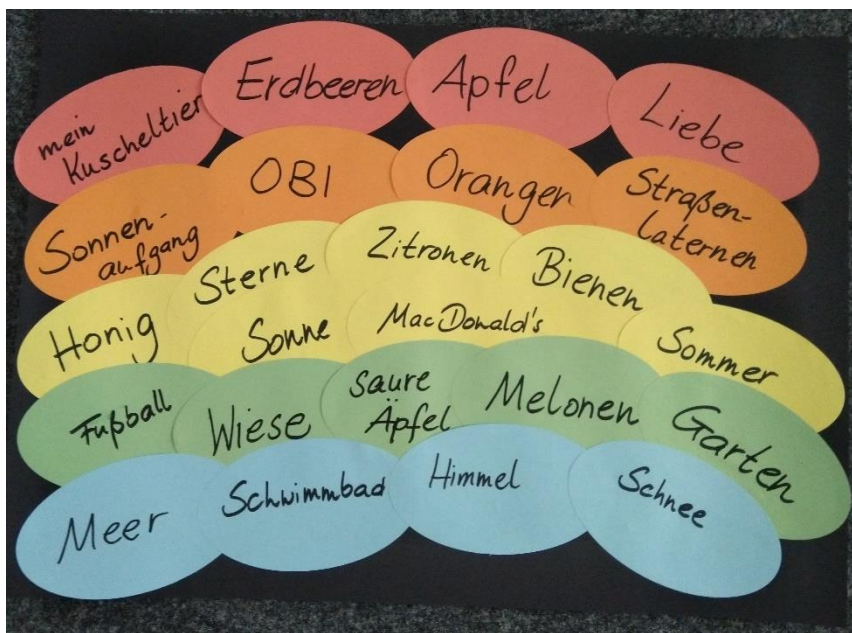 mein
Kuscheltier
Erdbeeren
Apfel
Liebe
Sonnen-
aufgang
OBI
Orangen
Straßen-
laternen
Honig
Sterne
Sonne
Zitronen
MacDonald's
Bienen
Sommer
Fußball
Wiese
saure
Äpfel
Melonen
Garten
Meer
Schwimmbad
Himmel
Schnee